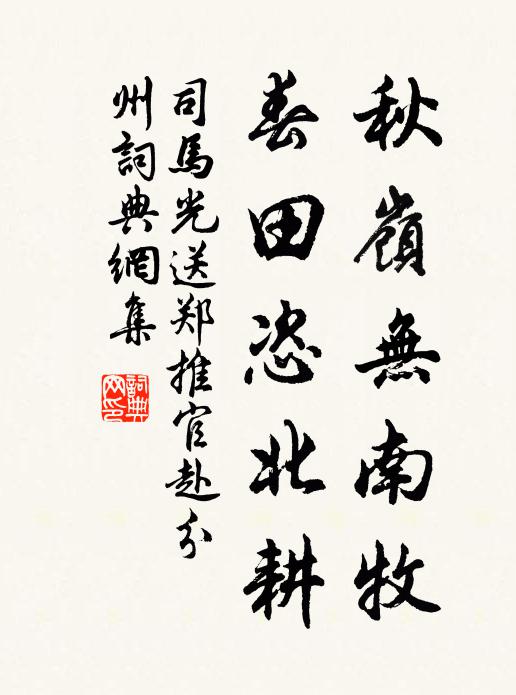 秋嶺無南牧
春田恣北耕
司馬光送郑推官赴分
州詞典網集
詞典
网印